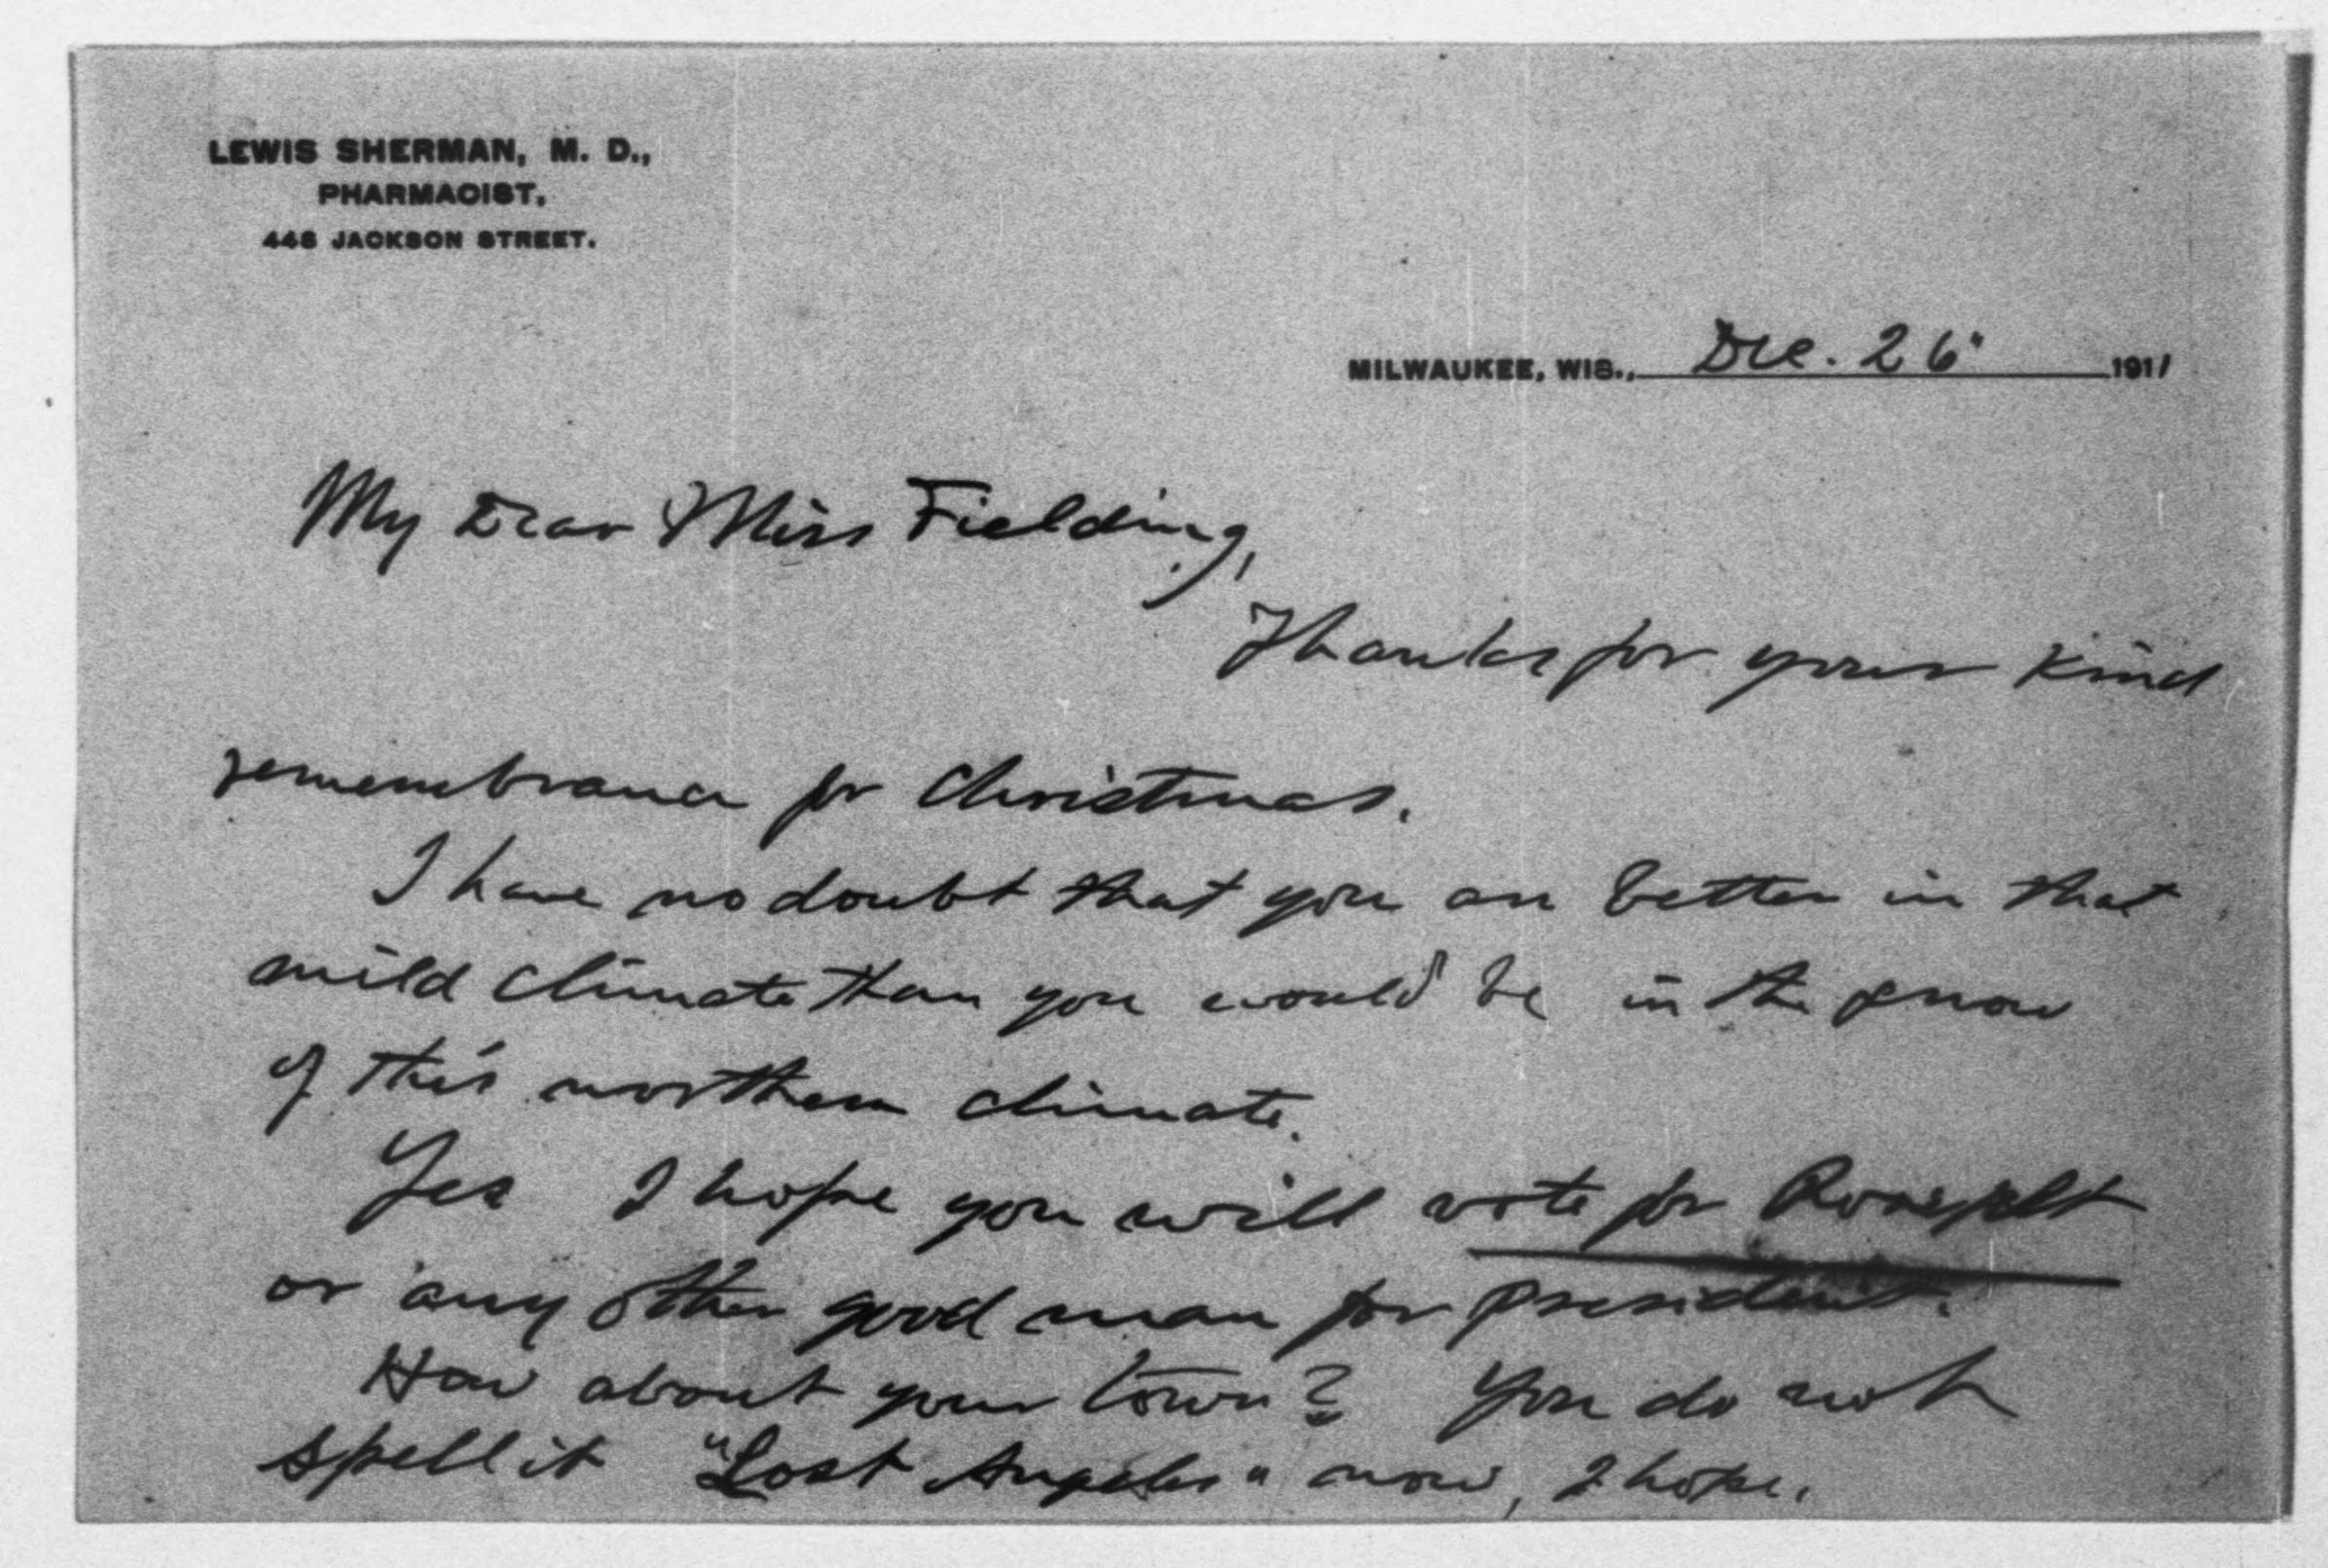 LEWIS SHERMAN, M. D.,
PHARMACIST,
448 JACKSON STREET.
MILWAUKEE, WIS., Dec. 26" 1911
My Dear Miss Fielding,
Thanks for your kind
remembrance for Christmas.
I have no doubt that you are better in that
mild climate than you would be in the snow
of this northern climate.
Yes I hope you will vote for Roosevelt
or any other good man for president.
How about your town? You do not
spell it "Lost Angeles" now, I hope.